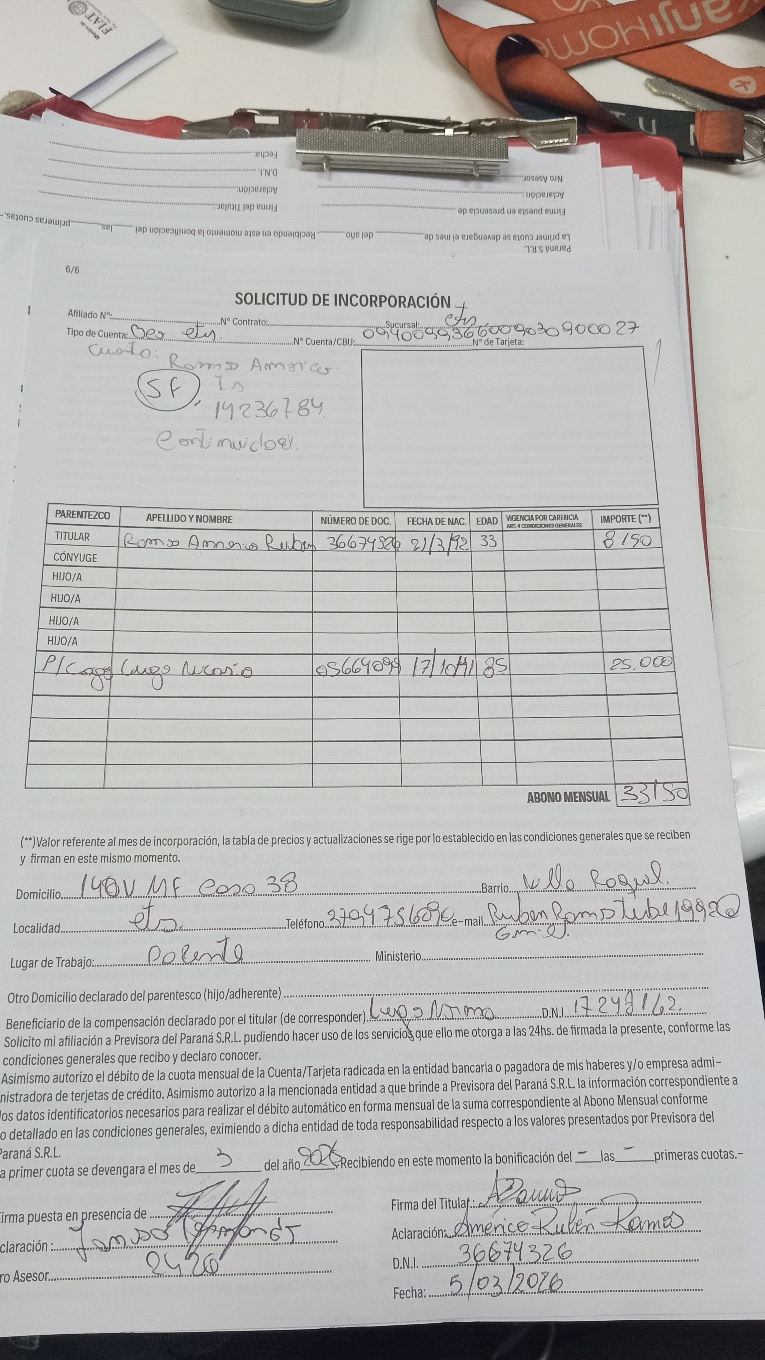 FIAT
anjiHOME
T U N
Paraná S.R.L.
La primer cuota se devengara el mes de del año Recibiendo en este momento la bonificación del las primeras cuotas.-
Firma puesta en presencia de Firma del Titular:
Aclaración: Aclaración:
Nro Asesor D.N.I.
Fecha:
6/6
SOLICITUD DE INCORPORACIÓN
Afiliado Nº: Nº Contrato: Sucursal: ets
Tipo de Cuenta: ets. Nº Cuenta/CBU: Nº de Tarjeta:
14236784
SF
PARENTEZCO APELLIDO Y NOMBRE NÚMERO DE DOC. FECHA DE NAC. EDAD VIGENCIA POR CARENCIA ART. 4 CONDICIONES GENERALES IMPORTE (**)
TITULAR 21/3/92 33 8150
CÓNYUGE
HIJO/A
HIJO/A
HIJO/A
HIJO/A
Lugo 05664099 17/10/41 85 25.000
ABONO MENSUAL 33150
(**)Valor referente al mes de incorporación, la tabla de precios y actualizaciones se rige por lo establecido en las condiciones generales que se reciben
y firman en este mismo momento.
Domicilio 140V MF casa 38 Barrio
Localidad ets. Teléfono e-mail
Lugar de Trabajo: Docente Ministerio
Otro Domicilio declarado del parentesco (hijo/adherente)
Beneficiario de la compensación declarado por el titular (de corresponder) Lugo Norma D.N.I
Solicito mi afiliación a Previsora del Paraná S.R.L. pudiendo hacer uso de los servicios que ello me otorga a las 24hs. de firmada la presente, conforme las
condiciones generales que recibo y declaro conocer.
Asimismo autorizo el débito de la cuota mensual de la Cuenta/Tarjeta radicada en la entidad bancaria o pagadora de mis haberes y/o empresa admi-
nistradora de terjetas de crédito. Asimismo autorizo a la mencionada entidad a que brinde a Previsora del Paraná S.R.L. la información correspondiente a
los datos identificatorios necesarios para realizar el débito automático en forma mensual de la suma correspondiente al Abono Mensual conforme
o detallado en las condiciones generales, eximiendo a dicha entidad de toda responsabilidad respecto a los valores presentados por Previsora del
Paraná S.R.L.
a primer cuota se devengara el mes de 3 del año 2026 Recibiendo en este momento la bonificación del - las - primeras cuotas.-
irma puesta en presencia de Firma del Titular:
claración : Aclaración: Américo Rubén Ramos
ro Asesor 2420 D.N.I. 36674326
Fecha: 5/03/2026